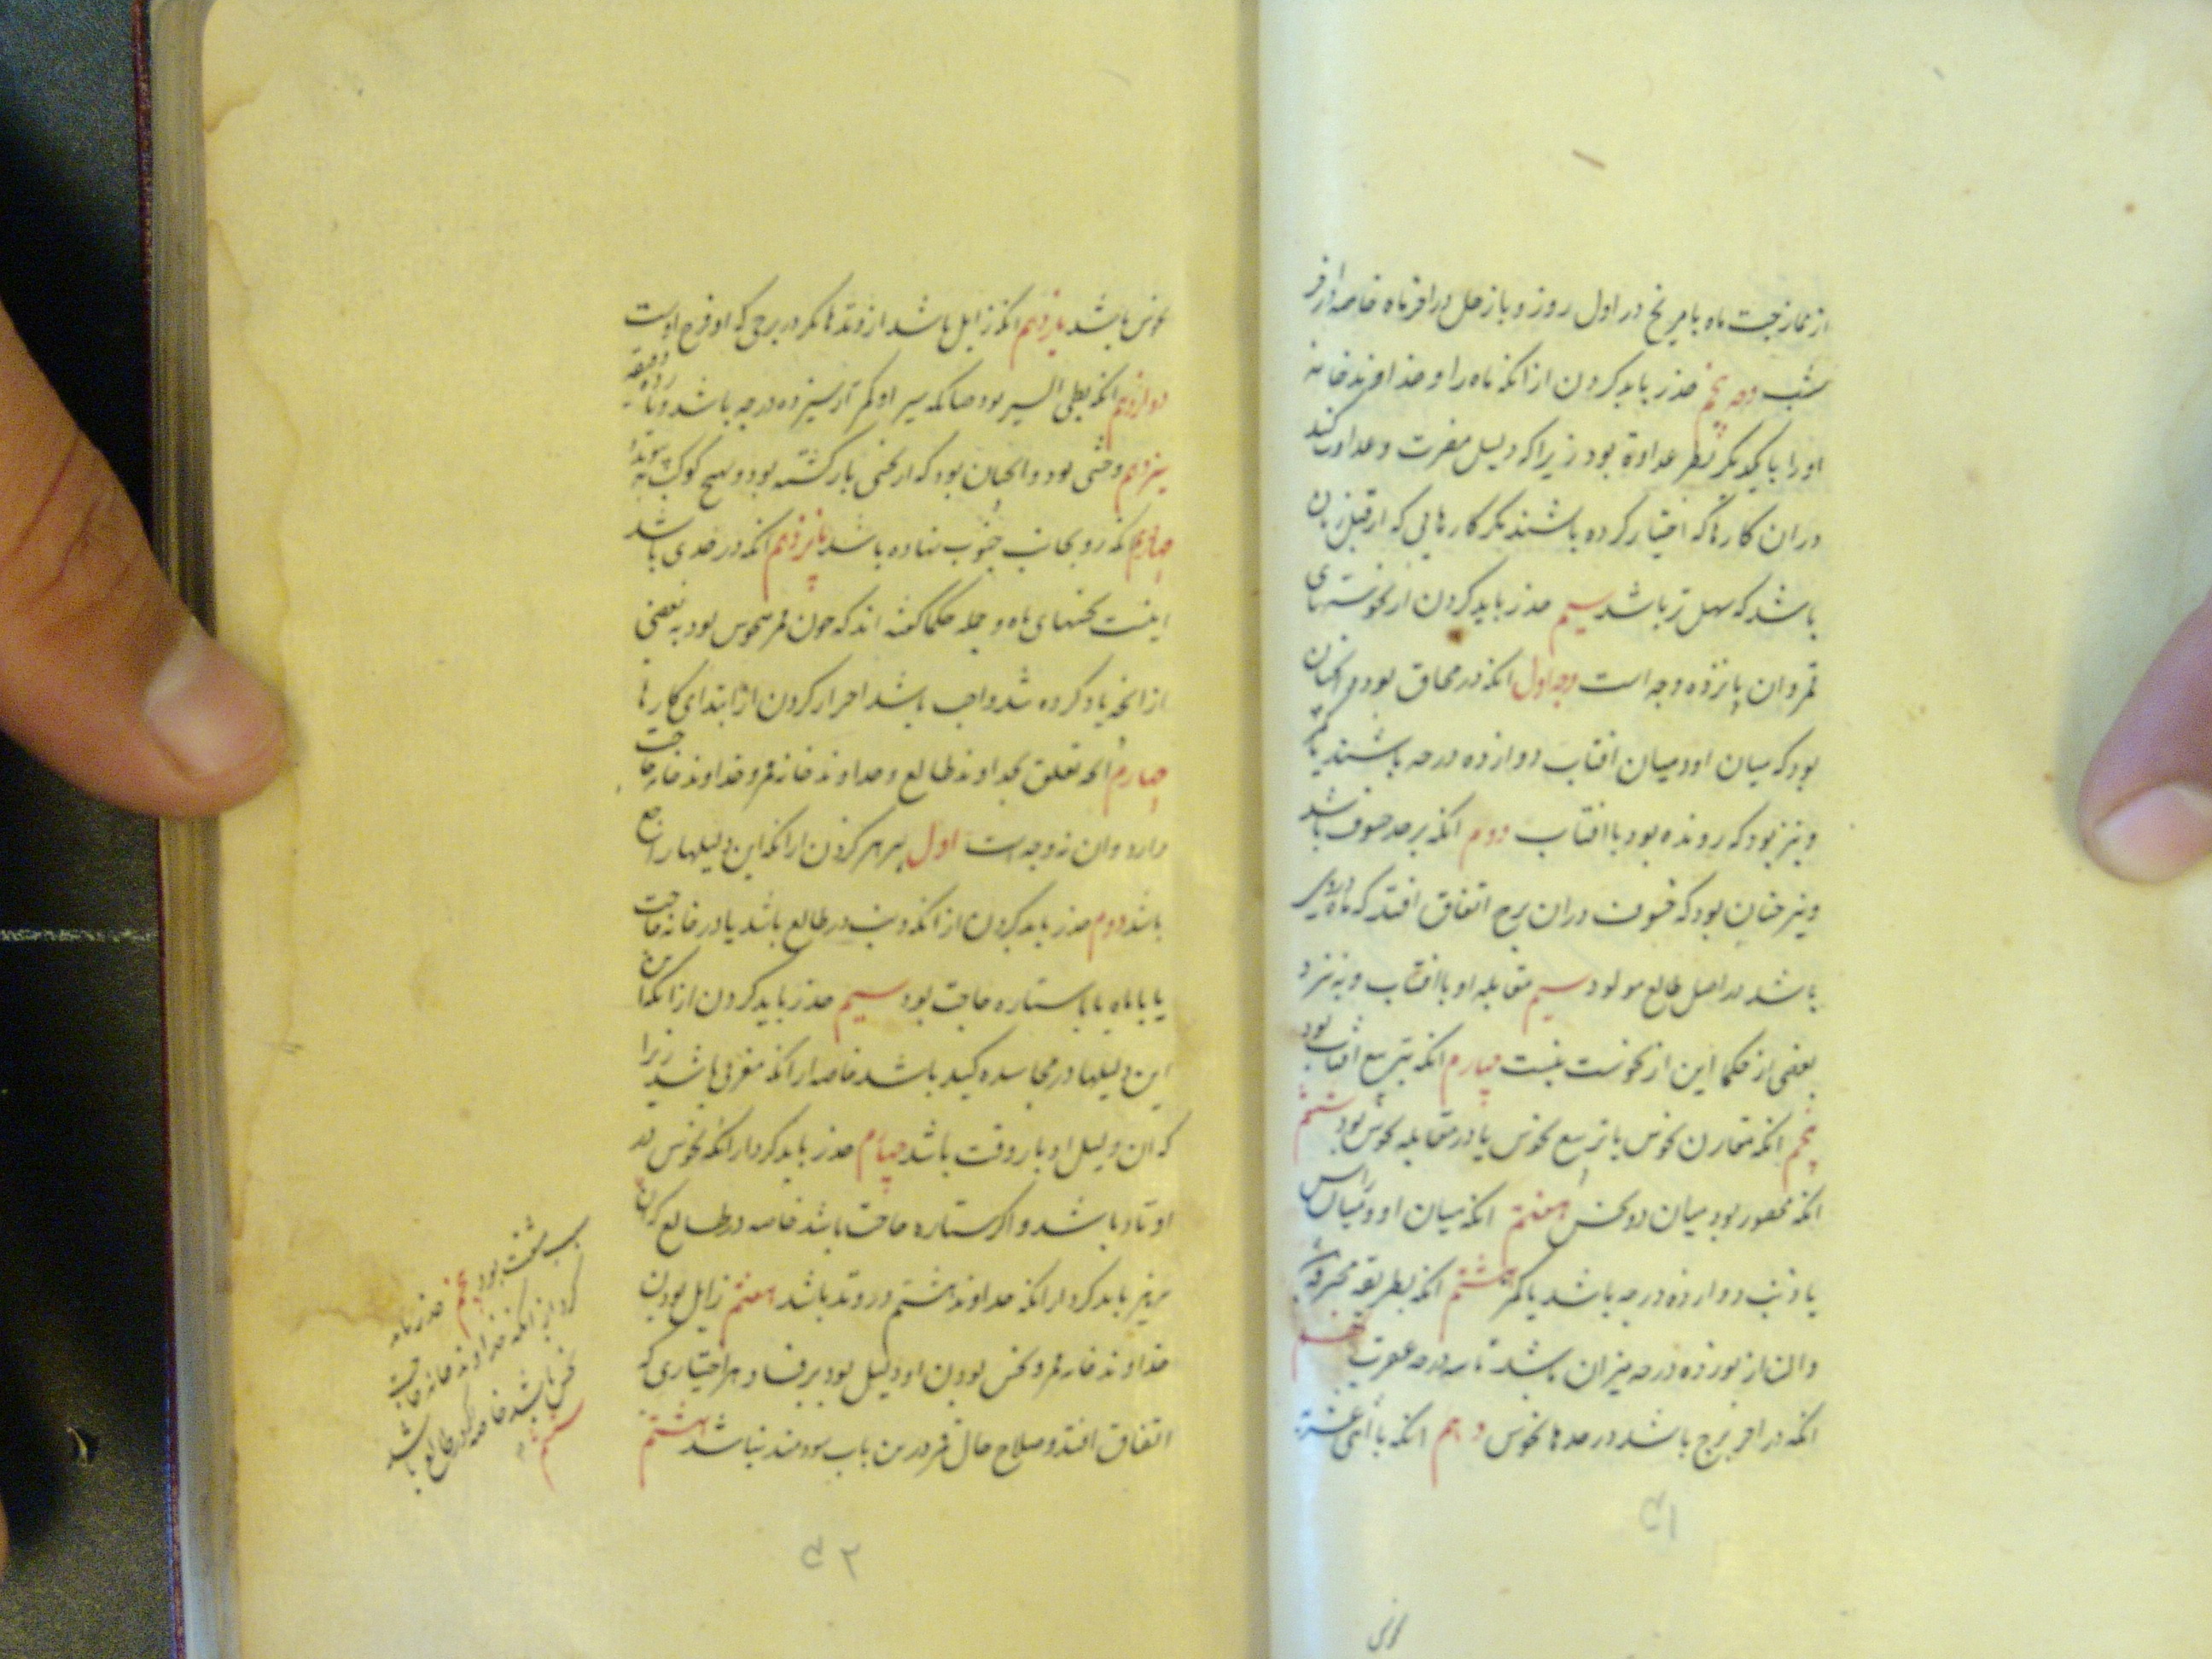 از ممازجت ماه با مریخ در اول روز و با زحل در اخر ماه خاصه در
شب وجه پنجم حذر باید کردن از انکه ماه را و خداوند خانه
او را با یکدیکر نظر عداوة بود زیرا که دلیل مضرت و عداوت کند
دران کارها که اختیار کرده باشند مکر کارهایی که از قبل زنان
باشد که سهل تر باشد سیم حذر باید کردن از نحوستهای
قمر و ان پانزده وجه است وجه اول انکه در محاق بود و انچنان
بود که میان او و میان افتاب دوازده درجه باشند یا کم
و نیز بود که رونده بود با افتاب دوم انکه بر حد خسوف باشد
و نیز چنان بود که خسوف دران برج اتفاق افتد که ماه دروی
باشد در اصل طالع مولود سیم مقابله او با افتاب و به نزد
بعضی از حکما این از نحوست نیست چهارم انکه بتربیع افتاب بود
پنجم انکه مقارن نحوس یا تربیع نحوس یا در مقابله نحوس بود ششم
انکه محصور بود میان دو نحس هفتم انکه میان او و میان راس
یا ذنب دوازده درجه باشد یا کمتر هشتم انکه بطریقه محترقه باشد
و ان از نوزده درجه میزان باشد تا سه درجه عقرب نهم
انکه در اخر برج باشد در حدها نحوس دهم انکه با اثنی عشریه
۵۱
نحوس
نحوس باشد یازدهم انکه زایل باشد از وتدها مکر در برجی که او فرح اوست
دوازدهم انکه بطی السیر بود چنانکه سیر او کم از سیزده درجه باشد و یازده دقیقه
سیزدهم وحشی بود و انچنان بود که از نحسی باز کشته بود و بهیچ کوکب نه پیوندد
چهاردهم انکه رو بجانب جنوب نهاده باشد پانزدهم انکه در جدی باشد
اینست نحسهای ماه و جمله حکما کفته اند که چون قمر منحوس بود به بعضی
از انچه یاد کرده شد واجب باشد احتراز کردن از ابتدای کارها
چهارم انچه تعلق بخداوند طالع و خداوند خانه قمر و خداوند خانه حاجت
دارد و ان نه وجه است اول پرهیز کردن از انکه این دلیلها راجع
باشد دوم حذر باید کردن از انکه ذنب در طالع باشد یا در خانه حاجت
یا با ماه یا با ستاره حاجت بود سیم حذر باید کردن از انکه این
این دلیلها در مجاسده کید باشد خاصه از انکه مغربی باشد زیرا
که ان دلیل ادبار وقت باشد چهارم حذر باید کرد از انکه نحوس در
اوتاد باشد و اکر ستاره حاجت باشد خاصه در طالع که ان
سبب سخت بود پنجم حذر باید
کرد از انکه خداوند خانه حاجت
نحس باشد خاصه که در طالع باشد
ششم
پرهیز باید کرد از انکه خداوند هشتم در وتد باشد هفتم زایل بودن
خداوند خانه قمر و نحس بودن او دلیل بود بر فساد هر اختیاری که
اتفاق افتد و صلاح حال قمر درین باب سودمند نباشد هشتم
۵۲